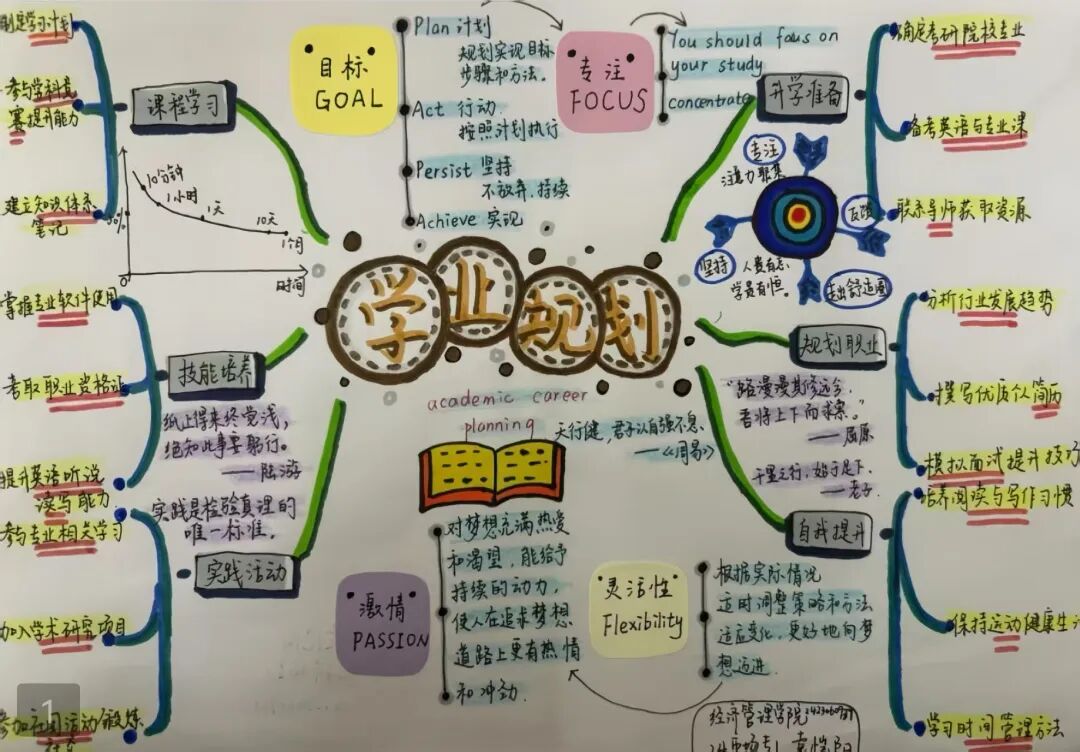 制定学习计划
参与学科竞
赛提升能力
建立知识体系
笔记
课程学习
10分钟
1小时
1天
10天
1个月
0
时间
目标
GOAL
Plan 计划
规划实现目标
步骤和方法。
Act 行动
按照计划执行
Persist 坚持
不放弃,持续
Achieve 实现
专注
FOCUS
You should focus on
your study
concentrate
升学准备
确定考研院校专业
备考英语与专业课
联系导师获取资源
专注
注意力聚集
反馈
坚持
人贵有志,
学贵有恒。
走出舒适圈
学业规划
academic career
planning
天行健,君子以自强不息。
——《周易》
掌握专业软件使用
考取职业资格证
提升英语听说
读写能力
技能培养
纸上得来终觉浅,
绝知此事要躬行。
——陆游
实践是检验真理的
唯一标准。
参与专业相关学习
加入学术研究项目
参加社团活动锻炼
实践活动
规划职业
分析行业发展趋势
撰写优质个人简历
模拟面试提升技巧
"路漫漫其修远兮,
吾将上下而求索。"
——屈原
千里之行,始于足下。
——老子
自我提升
培养阅读与写作习惯
保持运动健康生
学习时间管理方法
激情
PASSION
对梦想充满热爱
和渴望,能给予
持续的动力,
使人在追求梦想
道路上更有热情
和冲动.
灵活性
Flexibility
根据实际情况
适时调整策略和方法
适应变化,更好地向梦
想迈进
经济管理学院
1